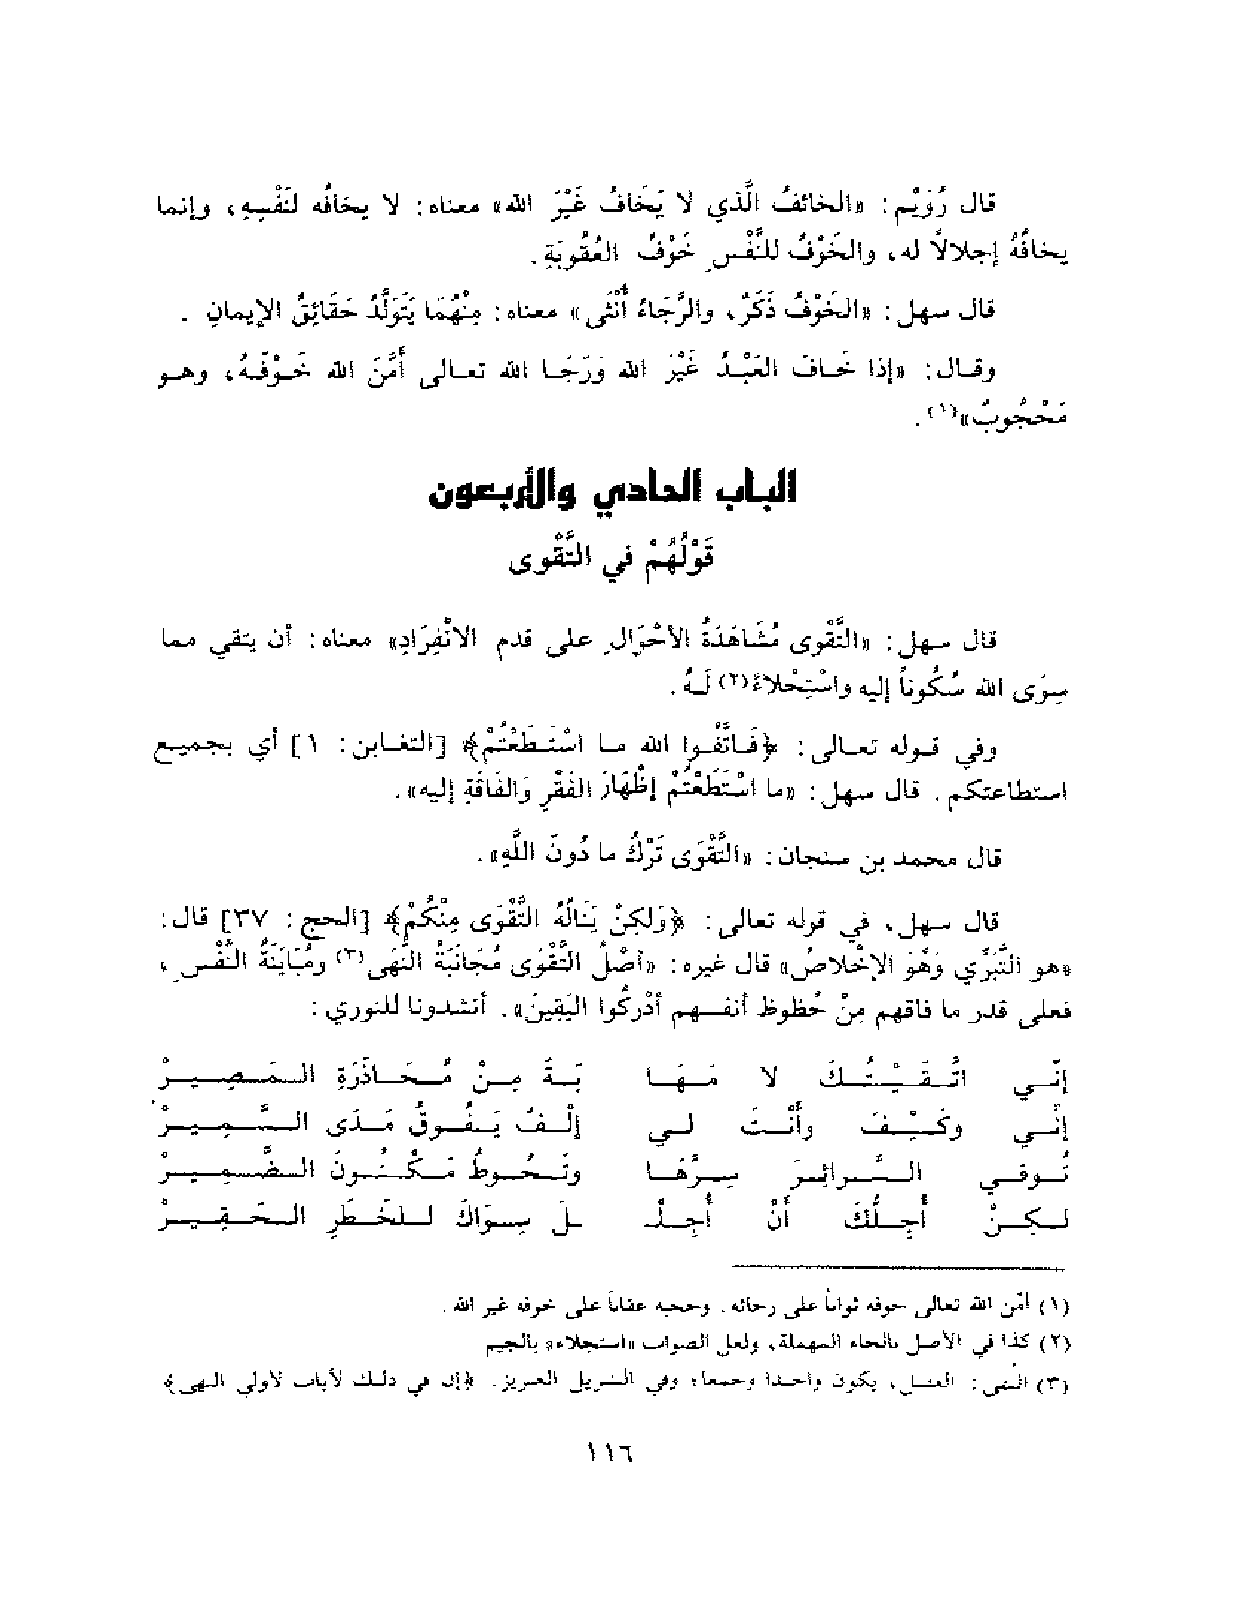 قال رُوَيْم: «الخائفُ الَّذي لا يَخَافُ غَيْرَ الله» معناه: لا يخافُه لنَفْسِهِ، وإنما
يخافُهُ إجلالاً له، والخَوْفُ للنَّفْسِ خَوْفُ العُقُوبَةِ.
قال سهل: «الخَوْفُ ذَكَرٌ، والرَّجَاءُ أُنْثى» معناه: مِنْهُمَا يَتَوَلَّدُ حَقَائِقُ الإيمانِ .
وقـال: «إذا خَـافَ العَبْـدُ غَيْرَ الله وَرَجَـا الله تعـالى أَمَّنَ الله خَـوْفَـهُ، وهـو
مَحْجُوبٌ»(١) .
الباب الحادي والأربعون
قَوْلُهُمْ في التَّقْوى
قال سهل: «التَّقْوى مُشَاهَدَةُ الأحْوَالِ على قدم الانْفِرَادِ» معناه: أن يتقي مما
سِوَى الله سُكُوناً إليه واسْتِحْلاءً(٢) لَـهُ .
وفي قـوله تعـالى: ﴿فَـاتَّقـوا الله مـا اسْتَطَعْتُمْ﴾ [التغـابن: ١] أي بجميـع
استطاعتكم . قال سهل: «ما اسْتَطَعْتُمْ إظْهَارَ الفَقْرِ وَالفَاقَةِ إليه».
قال محمد بن سنجان: «التَّقْوَى تَرْكُ ما دُونَ اللَّهِ».
قال سهل، في قوله تعالى: ﴿وَلكِنْ يَنَالُهُ التَّقْوَى مِنْكُمْ﴾ [الحج: ٣٧] قال:
«هو التَّبَرِّي وَهُوَ الإخْلاصُ» قال غيره: «أصْلُ التَّقْوَى مُجَانَبَةُ النَّهَى(٣) ومُبَايَنَةُ النَّفْسِ،
فعلى قدر ما فاقهم مِنْ حُظوظ أنفـسهم أدْركُوا اليَقِينَ». أنشدونا للنوري:
إنّـي اتَّـقَـيْـتُـكَ لا مَـهَـا بَـةَ مِـنْ مُـحَـاذَرَةِ الـمَـصِـيـرْ
إنّـي وكَـيْـفَ وأنْـتَ لـي إلْـفٌ يَـفُـوقُ مَـدَى الـسَّـمِـيـرْ
تُـوفـي الـسَّـرائِـرَ سِـرَّهَـا وتَـحُـوطُ مَـكْـنُـونَ الـضَّـمِـيـرْ
لـكِـنْ أُجِـلُّكَ أنْ أُجِـلْـ ـلَ سِـوَاكَ لـلخَـطَرِ الـحَـقِـيـرْ
(١) أمّن الله تعالى خوفه ثواباً على رجائه. وحجبه عقاباً على خوفه غير الله.
(٢) كذا في الأصل بالحاء المهملة، ولعل الصواب «استجلاء» بالجيم
(٣) النُّهى: العقـل، يكون واحدا وجمعا؛ وفي التنـزيل العـزيز. ﴿إن في ذلـك لآيات لأولي النهى﴾
١١٦